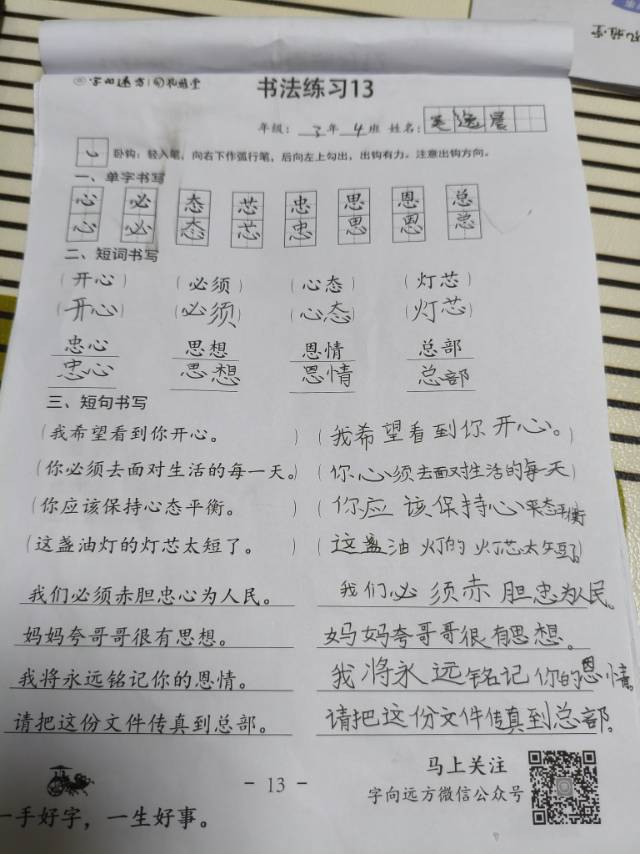 字向远方 孔祖堂
孔祖堂
书法练习13
年级: 3年 4班 姓名: 逸
卧钩: 轻入笔, 向右下作弧行笔, 后向左上勾出, 出钩有力。注意出钩方向。
一、单字书写
心 必 态 芯 忠 思 恩 总
心 必 态 芯 忠 思 恩 总
二、短词书写
(开心) (必须) (心态) (灯芯)
(开心) (必须) (心态) (灯芯)
忠心 思想 恩情 总部
忠心 思想 恩情 总部
三、短句书写
(我希望看到你开心。) (我希望看到你开心。)
(你必须去面对生活的每一天。) (你心须去面对生活的每一天)
(你应该保持心态平衡。) (你应该保持心态平衡
(这盏油灯的灯芯太短了。) (这盏油灯的灯芯太短了。)
我们必须赤胆忠心为人民。 我们必须赤胆忠为人民。
妈妈夸哥哥很有思想。 妈妈夸哥哥很有思想。
我将永远铭记你的恩情。 我将永远铭记你的恩情。
请把这份文件传真到总部。 请把这份文件传真到总部。
马上关注
- 13 -
字向远方微信公众号
一手好字, 一生好事。